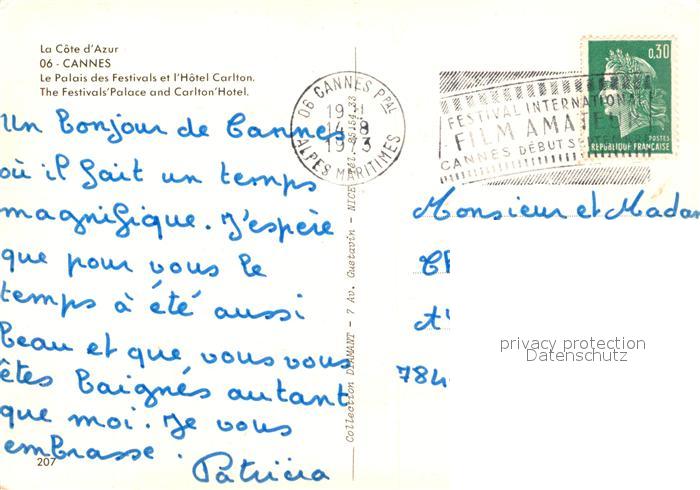 La Côte d'Azur
06 - CANNES
Le Palais des Festivals et l'Hôtel Carlton.
The Festivals'Palace and Carlton'Hotel.
Un bonjour de Cannes
où il fait un temps
magnifique. J'espère
que pour vous le
temps à été aussi
beau et que vous vous
êtes baignés autant
que moi. Je vous
embrasse.
Patricia
207
06 CANNES PPAL
14-8
1973
ALPES MARITIMES
Collection DIAMANT - 7 Av. Gustavin - NICE
FESTIVAL INTERNATIONAL
FILM AMATEUR
CANNES DÉBUT SEPTEMBRE
0,30
POSTES
RÉPUBLIQUE FRANÇAISE
Monsieur et Madam
784
privacy protection
Datenschutz